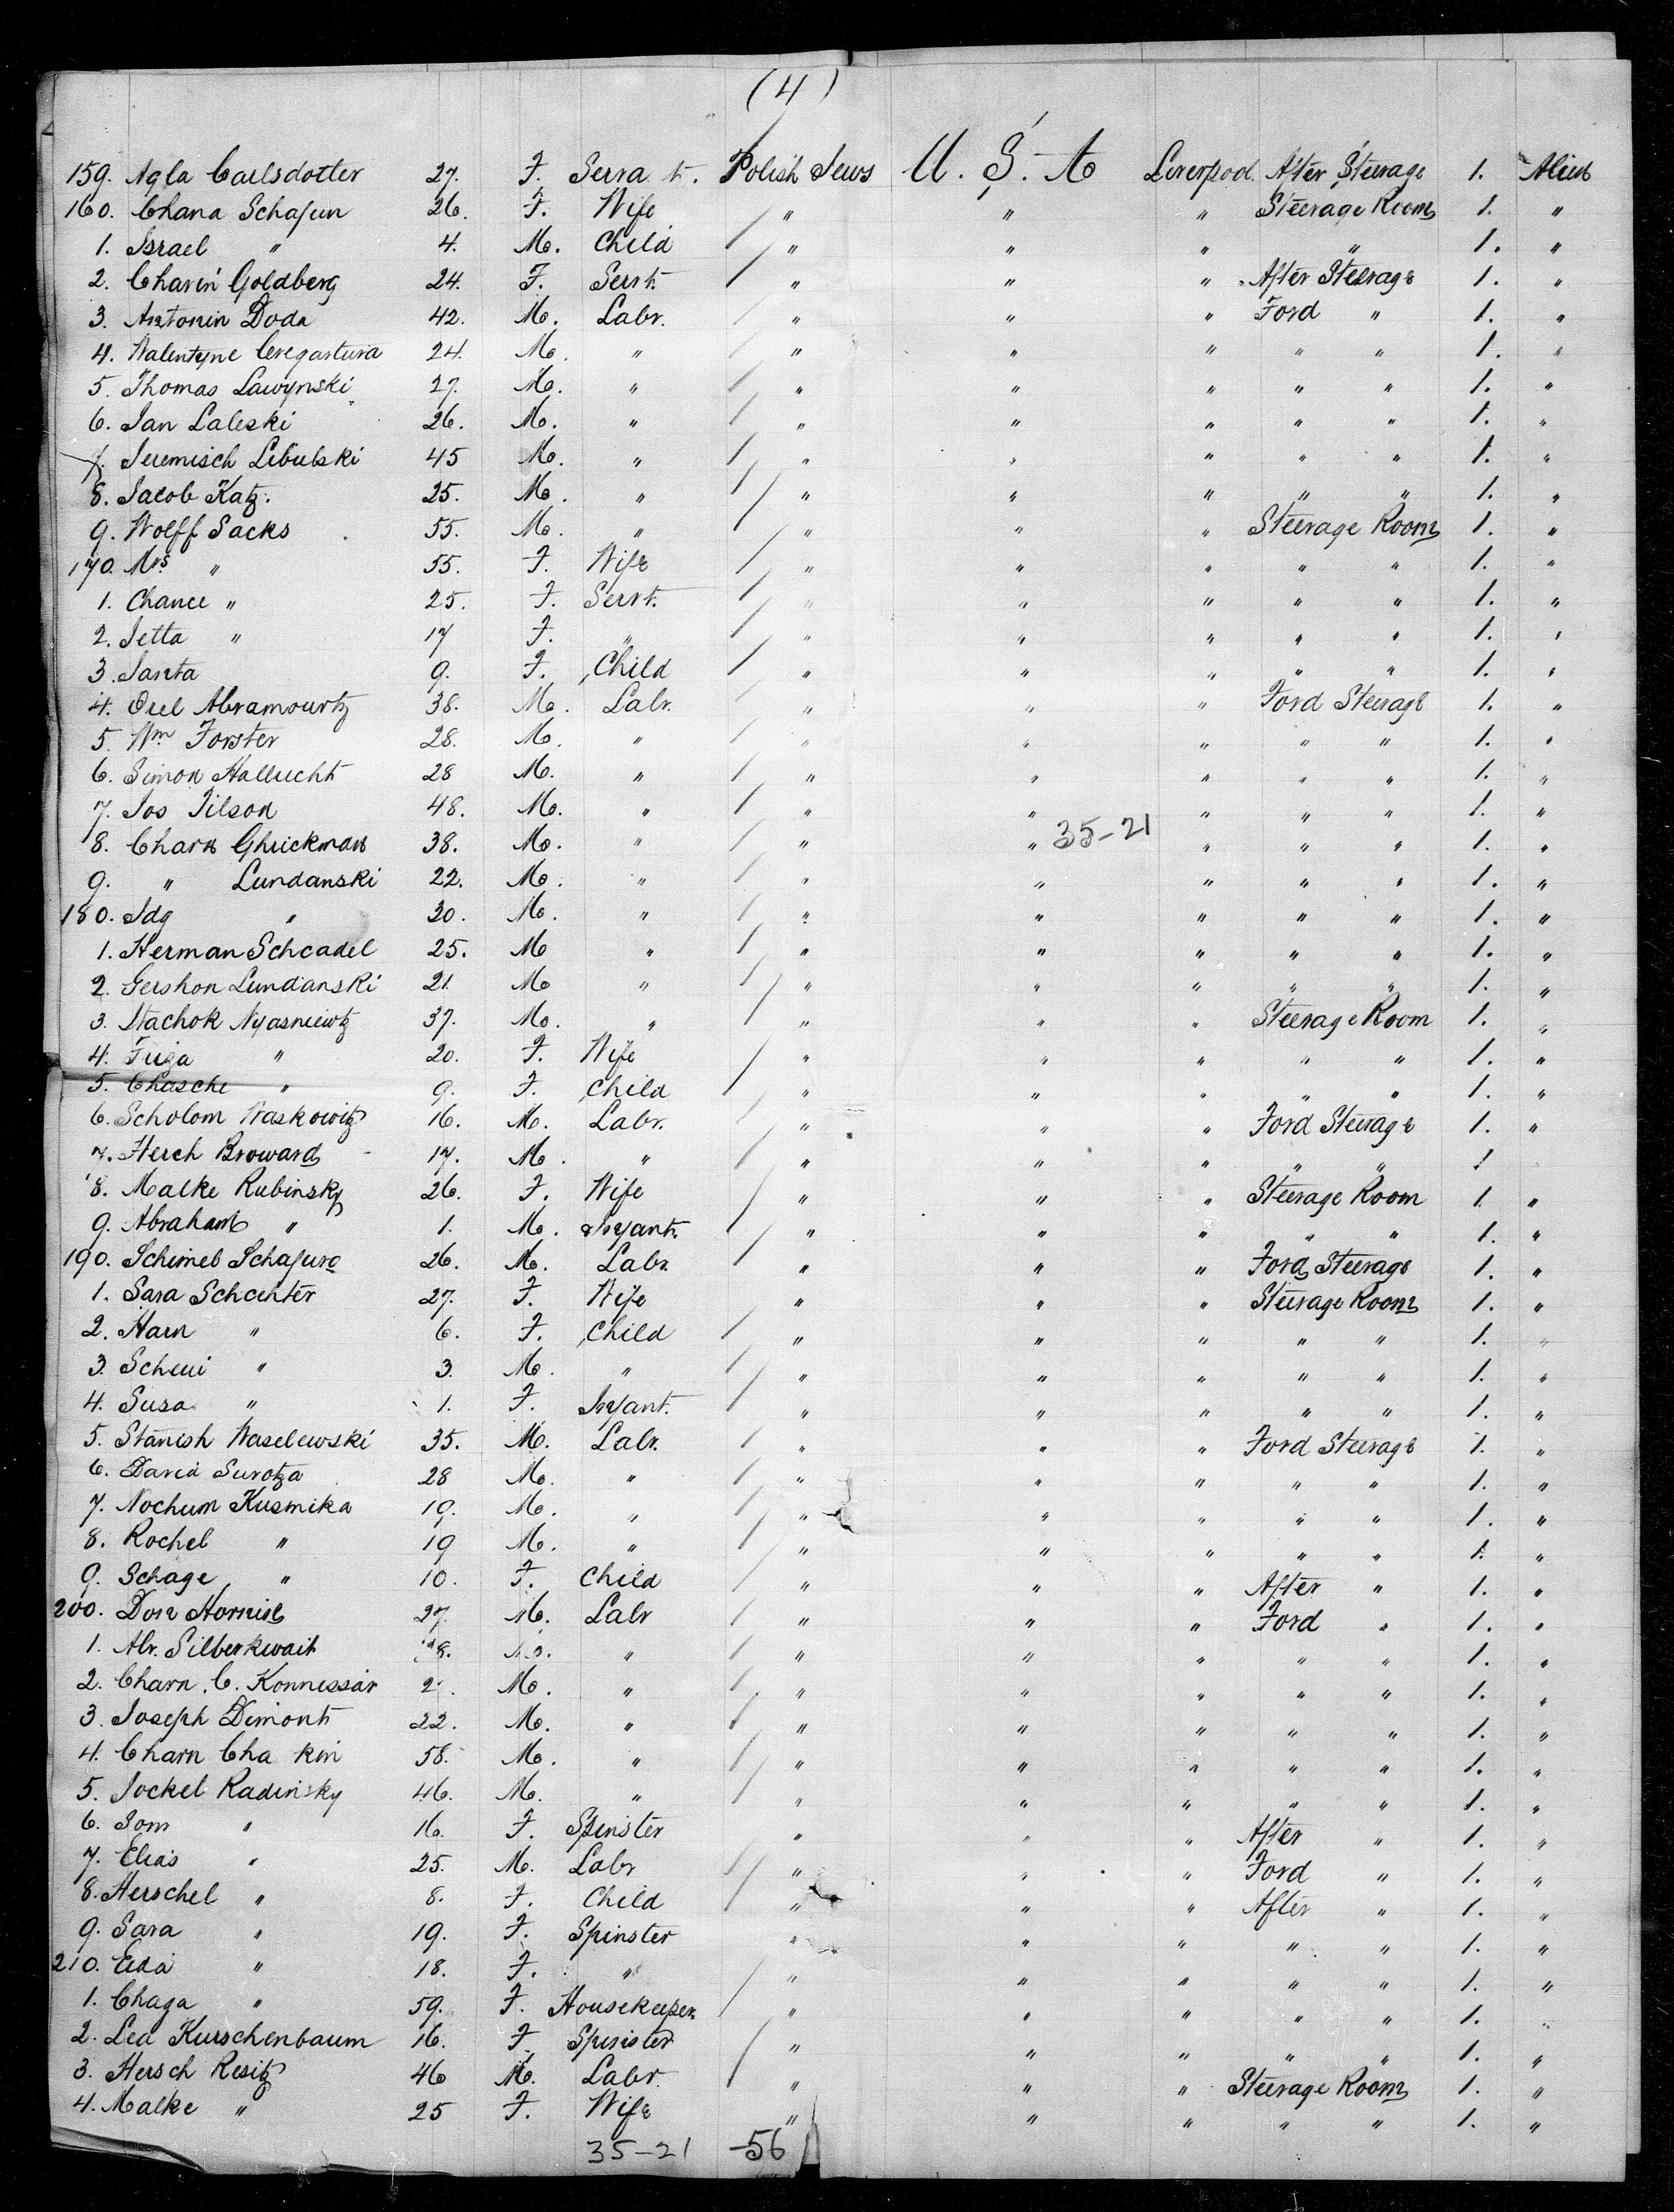 (4)
159. Agla Carlsdotter 27. F. Serva t. Polish Jews U. S. A Liverpool. After Steerage 1. Alien
160. Chana Schafun 26. F. Wife " " " Steerage Room 1. "
1. Israel " 4. M. Child " " " " 1. "
2. Goldberg 24. F. Servt. " " " After Steerage 1. "
3. Antonin Doda 42. M. Labr. " " " Ford " 1. "
4. Walentyne 24. M. " " " " " " 1. "
5. Thomas Lawynski 27. M. " " " " " " 1. "
6. Jan Laleski 26. M. " " " " " " 1. "
7. Jeremisch Libulski 45 M. " " " " " " 1. "
8. Jacob Katz. 25. M. " " " " " " 1. "
9. Wolff Sacks 55. M. " " " " Steerage Room 1. "
170. Mrs " 55. F. Wife " " " " " 1. "
1. Chance " 25. F. Servt. " " " " " 1. "
2. Jetta " 17 F. " " " " " " 1. "
3. Janta 9. F. Child " " " " " 1. "
4. Orel Abramourtz 38. M. Labr. " " " Ford Steerage 1. "
5. Wm Forster 28. M. " " " " " " 1. "
6. Simon Hallucht 28 M. " " " " " " 1. "
7. Jos Jilson 48. M. " " " " " " 1. "
8. Charn Ghrickman 38. M. " " " 35-21 " " " 1. "
9. " Lundanski 22. M. " " " " " " 1. "
180. Idg " 30. M. " " " " " " 1. "
1. Herman Schcadel 25. M " " " " " " 1. "
2. Gershon Lundanski 21. M " " " " " " 1. "
3. Stachok Nyasniewtz 37. M. " " " " Steerage Room 1. "
4. Friga " 20. F. Wife " " " " " 1. "
5. Chasche " 9. F. Child " " " " " 1. "
6. Scholom Waskowitz 16. M. Labr. " " " Ford Steerage 1. "
7. Herch Broward 17. M. " " " " " " 1
8. Malke Rubinsky 26. F. Wife " " " Steerage Room 1. "
9. Abraham " 1. M. Infant. " " " " " 1. "
190. Schimel Schafuro 26. M. Labr. " " " Ford Steerage 1. "
1. Sara Schchter 27. F. Wife " " " Steerage Room 1. "
2. Harn " 6. F. Child " " " " " 1. "
3. Scheui " 3. M. " " " " " " 1. "
4. Susa " 1. F. Infant. " " " " " 1. "
5. Stanish Waselewski 35. M. Labr. " " " Ford Steerage 1. "
6. David Surotza 28 M. " " " " " " 1. "
7. Nochum Kusmika 19. M. " " " " " " 1. "
8. Rochel " 19 M. " " " " " " 1. "
9. Schage " 10. F. Child " " " After " 1. "
200. Don Hornise 27. M. Labr " " " Ford " 1. "
1. Abr. Silberkwait 8. M. " " " " " " 1. "
2. Charn. C. Konnessar 2 . M. " " " " " " 1. "
3. Joseph Dimont 22. M. " " " " " " 1. "
4. Charn Cha kin 58. M. " " " " " " 1. "
5. Jockel Radinsky 46. M. " " " " " " 1. "
6. Jom " 16. F. Spinster " " " After " 1. "
7. Elias " 25. M. Labr " " " Ford " 1. "
8. Herschel " 8. F. Child " " " After " 1. "
9. Sara " 19. F. Spinster " " " " " 1. "
210. Eda " 18. F. " " " " " " 1. "
1. Chaga " 59. F. Housekeeper " " " " " 1. "
2. Lea Kurschenbaum 16. F. Spinister " " " " " 1. "
3. Hersch Resitz 46 M. Labr. " " " Steerage Room 1. "
4. Malke " 25 F. Wife " " " " " 1. "
35-21 -56